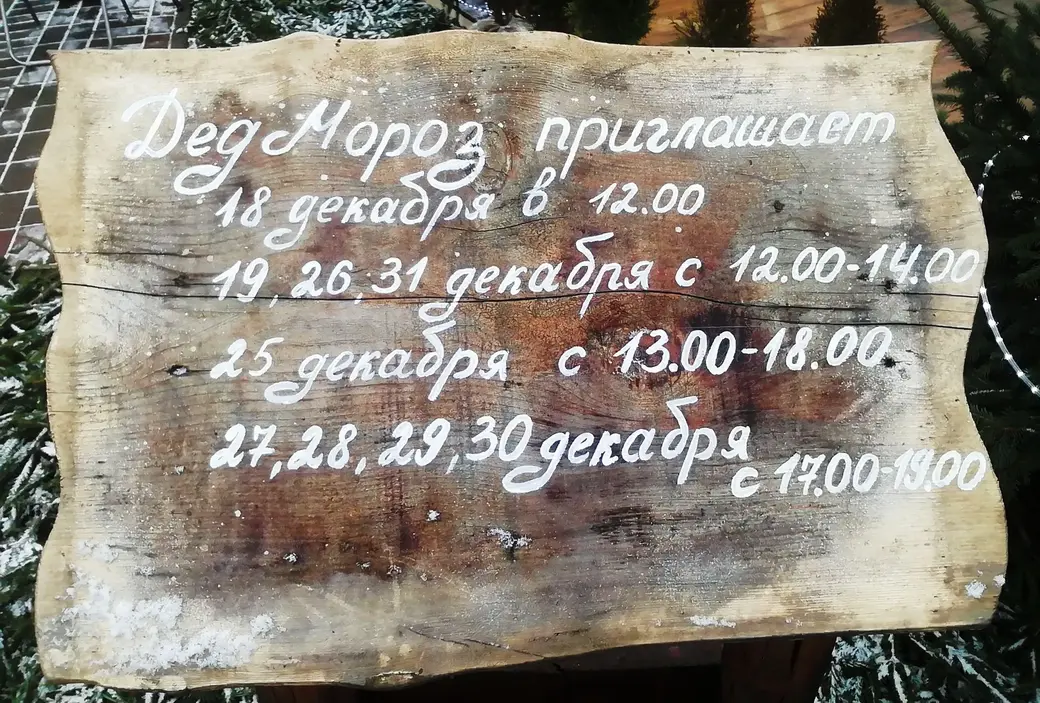 Дед Мороз приглашает
18 декабря в 12.00
19, 26, 31 декабря с 12.00-14.00
25 декабря с 13.00-18.00
27, 28, 29, 30 декабря
с 17.00-19.00